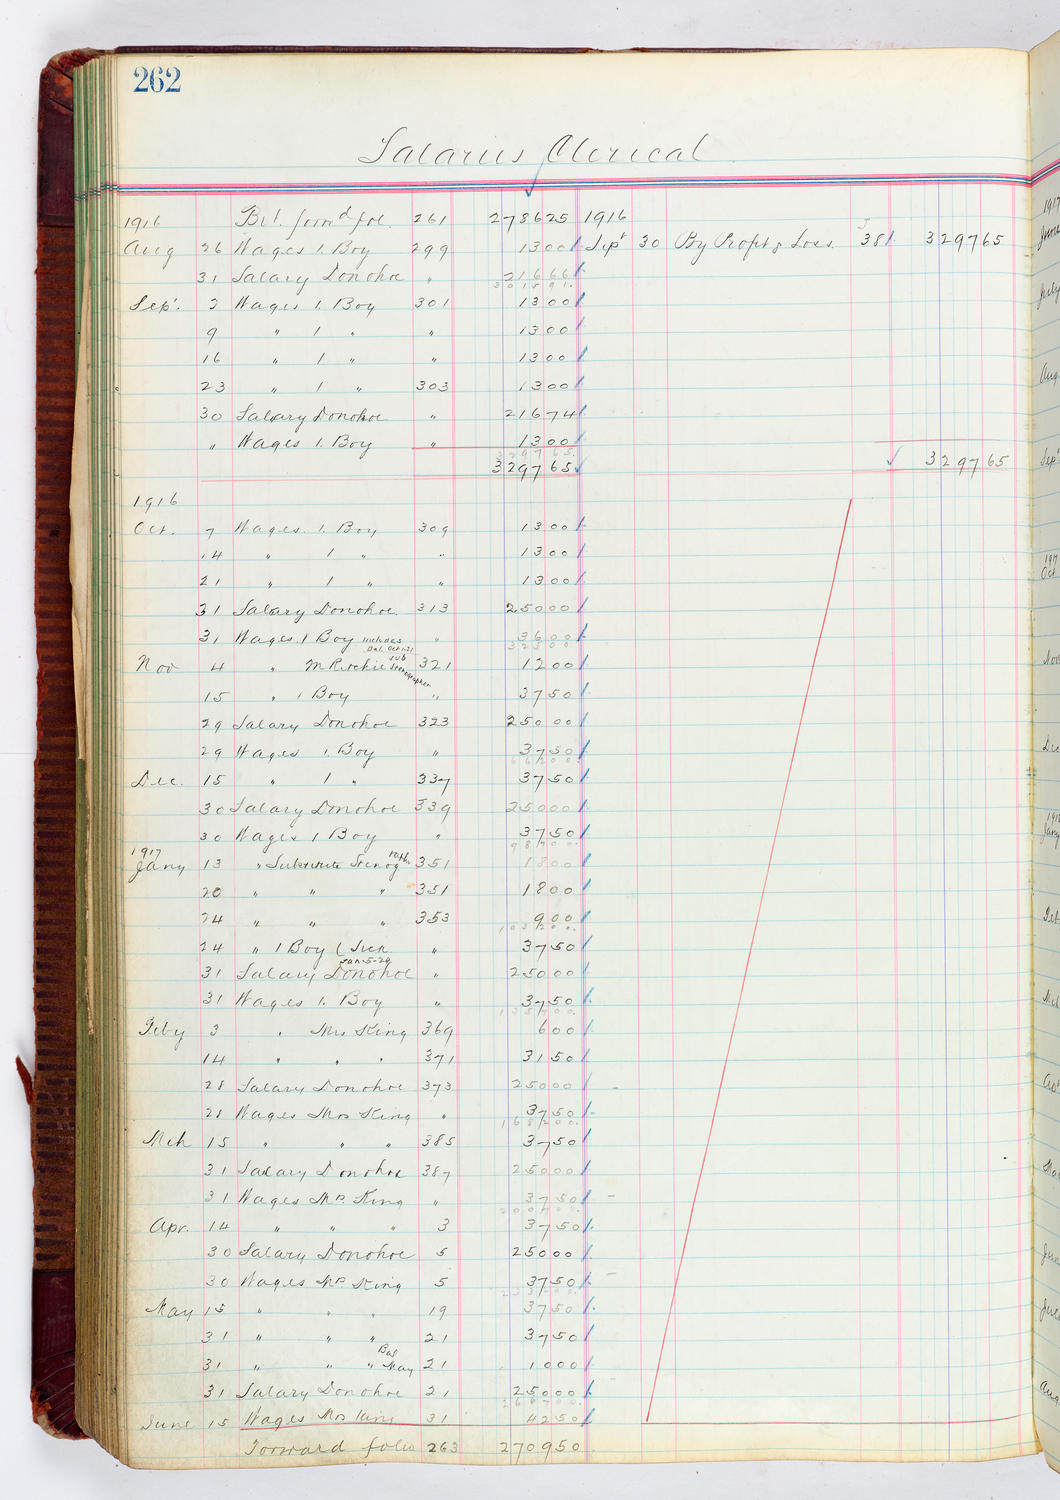 262
Salaries Clerical
1916 Bt. forwd fol. 261 278625 1916
Aug 26 Wages 1. Boy 299 1300 Sept 30 By Profit & Loss 381 329765
31 Salary Donohoe " 21666
301591
Sep. 2 Wages 1. Boy 301 1300
9 " 1 " " 1300
16 " 1 " " 1300
23 " 1 " 303 1300
30 Salary Donohoe " 21674
" Wages 1. Boy " 1300
329765
329765 329765
1916
Oct. 7 Wages. 1. Boy 309 1300
14 " 1 " " 1300
21 " 1 " " 1300
31 Salary Donohoe. 313 25000
31 Wages. 1 Boy includes Bal. Oct. 21 " 3600
32500
Nov 4 " M Ritchie sub Stenographer 321 1200
15 " 1 Boy " 3750
29 Salary Donohoe 323 25000
29 Wages 1. Boy " 3750
66200
Dec. 15 " 1 " 337 3750
30 Salary Donohoe 339 25000
30 Wages 1 Boy " 3750
98700
1917
Jany 13 " Substitute Stenog 351 1800
20 " " " 351 1800
24 " " " 353 900
103200
24 " 1 Boy (Sick " 3750
Jan 5-24
31 Salary Donohoe " 25000
31 Wages 1. Boy " 3750
135700
Feby 3 " Mrs King 369 600
14 " " " 371 3150
28 Salary Donohoe 373 25000
28 Wages Mrs King " 3750
168200
Mch 15 " " " 385 3750
31 Salary Donohoe 387 25000
31 Wages Mrs King " 3750
200700
Apr. 14 " " " 3 3750
30 Salary Donohoe 5 25000
30 Wages Mrs King 5 3750
233200
May 15 " " " 19 3750
31 " " " 21 3750
31 " " " Bal May 21 1000
31 Salary Donohoe 21 25000
266700
June 15 Wages Mrs King 31 4250
Forward folio 263 270950
1917
June
July
Aug
Sep
1917
Oct
Nov
Dec
1918
Jany
Feb
Mch
Apr
May
June
July
Aug